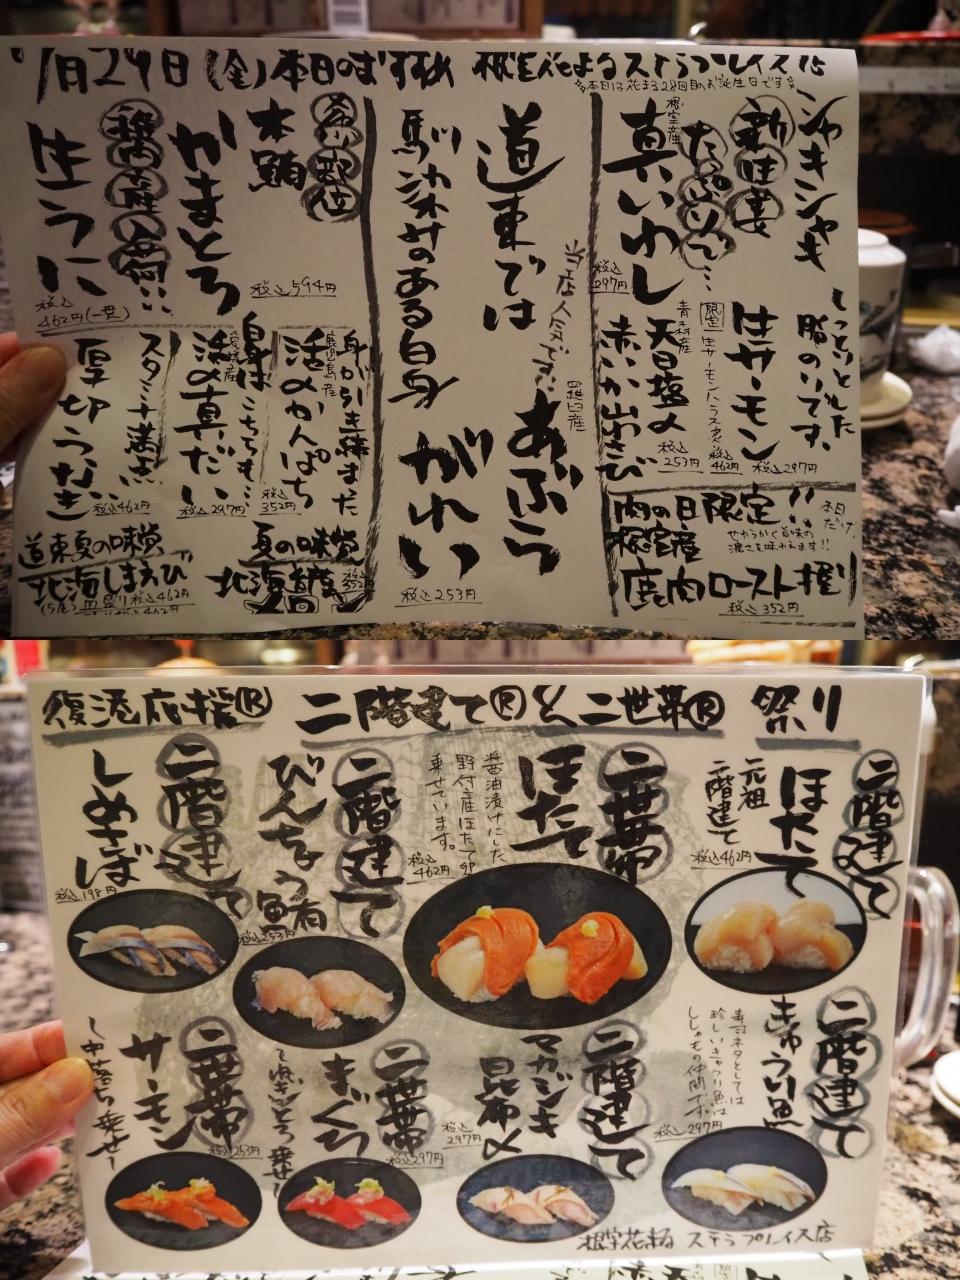 月29日(金)本日のおすすめ 根室花まるステラプレイス店
本日は花まる28回目のお誕生日です
シャキシャキ
新生姜
たっぷりで…
根室産
真いわし
税込297円
しっとりとした
脂のりです。
生サーモン
税込297円
限定
生サーモンハラス炙
税込462円
青森産
天日塩〆
赤いか山わさび
税込253円
肉の日限定!!
本日だけ
根室産
やわらかく旨味の
濃さを味わえます!!
鹿肉ロースト握り
税込352円
道東では
当店人気です。
羅臼産
あぶら
がれい
馴染みのある白身
税込253円
本鮪
かまとろ
税込594円
生うに
税込462円(一貫)
身が引き締まった
鹿児島産
活〆かんぱち
税込352円
身はこちらも…
愛媛産
活〆真だい
税込297円
スタミナ満点
厚切うなぎ
税込462円
夏の味覚
北海
税込352円
道東夏の味覚
北海しまえび
税込462円
復港応援Ⓡ 二階建てⓇと二世帯Ⓡ 祭り
二階建て
ほたて
元祖
二階建て
税込462円
二世帯
ほたて
醤油漬けにした
野付産ほたて卵
乗せています。
税込462円
二階建て
びんちょう鮪
税込253円
二階建て
しめさば
税込198円
二階建て
きゅうり魚
寿司ネタとしては
珍しいきゅうり魚は
ししゃもの仲間です。
税込297円
二階建て
マカジキ
昆布〆
税込297円
二世帯
まぐろ
〜ねぎとろ乗せ〜
税込297円
二世帯
サーモン
〜中落ち乗せ〜
税込253円
根室花まる ステラプレイス店